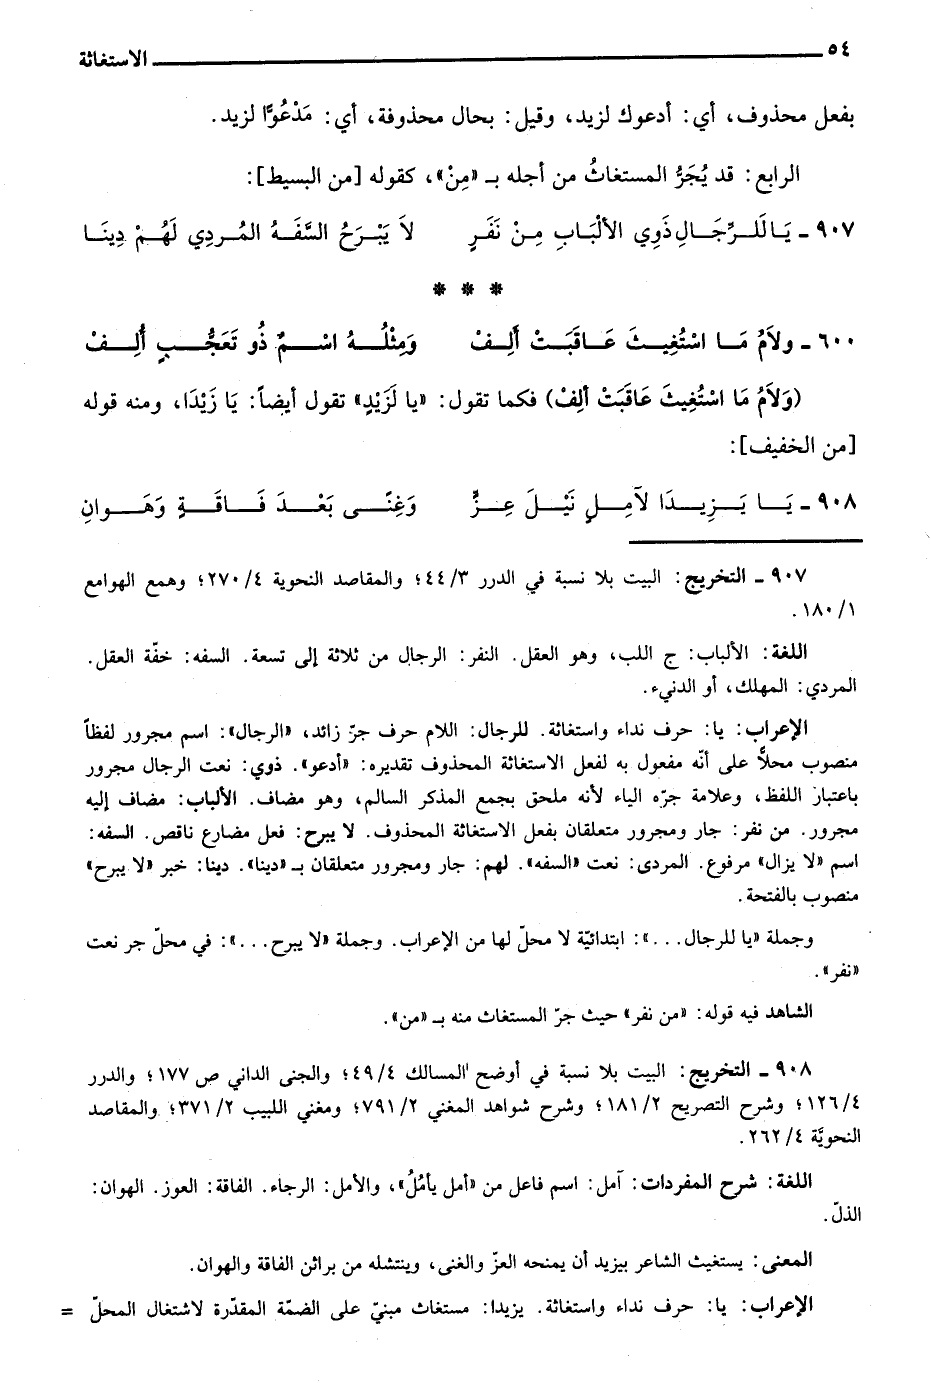 ٥٤ الاستغاثة
بفعل محذوف، أي: أدعوك لزيد، وقيل: بحال محذوفة، أي: مَدْعُوًّا لزيد.
الرابع: قد يُجَرُّ المستغاثُ من أجله بـ «مِنْ»، كقوله [من البسيط]:
٩٠٧ ـ يَا لَلرِّجَالِ ذَوِي الألْبَابِ مِنْ نَفَرٍ لاَ يَبْرَحُ السَّفَهُ المُرْدِي لَهُمْ دِينَا
* * *
٦٠٠ ـ ولاَمُ مَا اسْتُغِيثَ عَاقَبَتْ أَلِفْ وَمِثْلُهُ اسْمٌ ذُو تَعَجُّبٍ أُلِفْ
(وَلاَمُ مَا اسْتُغِيثَ عَاقَبَتْ أَلِفْ) فكما تقول: «يا لَزَيْدٍ» تقول أيضاً: يَا زَيْدَا، ومنه قوله
[من الخفيف]:
٩٠٨ ـ يَا يَزِيدَا لآمِلٍ نَيْلَ عِزٍّ وَغِنًى بَعْدَ فَاقَةٍ وَهَوانِ
٩٠٧ ـ التخريج: البيت بلا نسبة في الدرر ٤٤/٣؛ والمقاصد النحوية ٢٧٠/٤؛ وهمع الهوامع
١٨٠/١.
اللغة: الألباب: ج اللب، وهو العقل. النفر: الرجال من ثلاثة إلى تسعة. السفه: خفّة العقل.
المردي: المهلك، أو الدنيء.
الإعراب: يا: حرف نداء واستغاثة. للرجال: اللام حرف جرّ زائد، «الرجال»: اسم مجرور لفظاً
منصوب محلاًّ على أنّه مفعول به لفعل الاستغاثة المحذوف تقديره: «أدعو». ذوي: نعت الرجال مجرور
باعتبار اللفظ، وعلامة جرّه الياء لأنه ملحق بجمع المذكر السالم، وهو مضاف. الألباب: مضاف إليه
مجرور. من نفر: جار ومجرور متعلقان بفعل الاستغاثة المحذوف. لا يبرح: فعل مضارع ناقص. السفه:
اسم «لا يزال» مرفوع. المردى: نعت «السفه». لهم: جار ومجرور متعلقان بـ «دينا». دينا: خبر «لا يبرح»
منصوب بالفتحة.
وجملة «يا للرجال...»: ابتدائيّة لا محلّ لها من الإعراب. وجملة «لا يبرح...»: في محلّ جر نعت
«نفر».
الشاهد فيه قوله: «من نفر» حيث جرّ المستغاث منه بـ «من».
٩٠٨ ـ التخريج: البيت بلا نسبة في أوضح المسالك ٤٩/٤؛ والجنى الداني ص ١٧٧؛ والدرر
١٢٦/٤؛ وشرح التصريح ١٨١/٢؛ وشرح شواهد المغني ٧٩١/٢؛ ومغني اللبيب ٣٧١/٢؛ والمقاصد
النحويَّة ٢٦٢/٤.
اللغة: شرح المفردات: آمل: اسم فاعل من «أمل يأمُلُ»، والأمل: الرجاء. الفاقة: العوز. الهوان:
الذلّ.
المعنى: يستغيث الشاعر بيزيد أن يمنحه العزّ والغنى، وينتشله من براثن الفاقة والهوان.
الإعراب: يا: حرف نداء واستغاثة. يزيدا: مستغاث مبنيّ على الضمّة المقدّرة لاشتغال المحلّ =